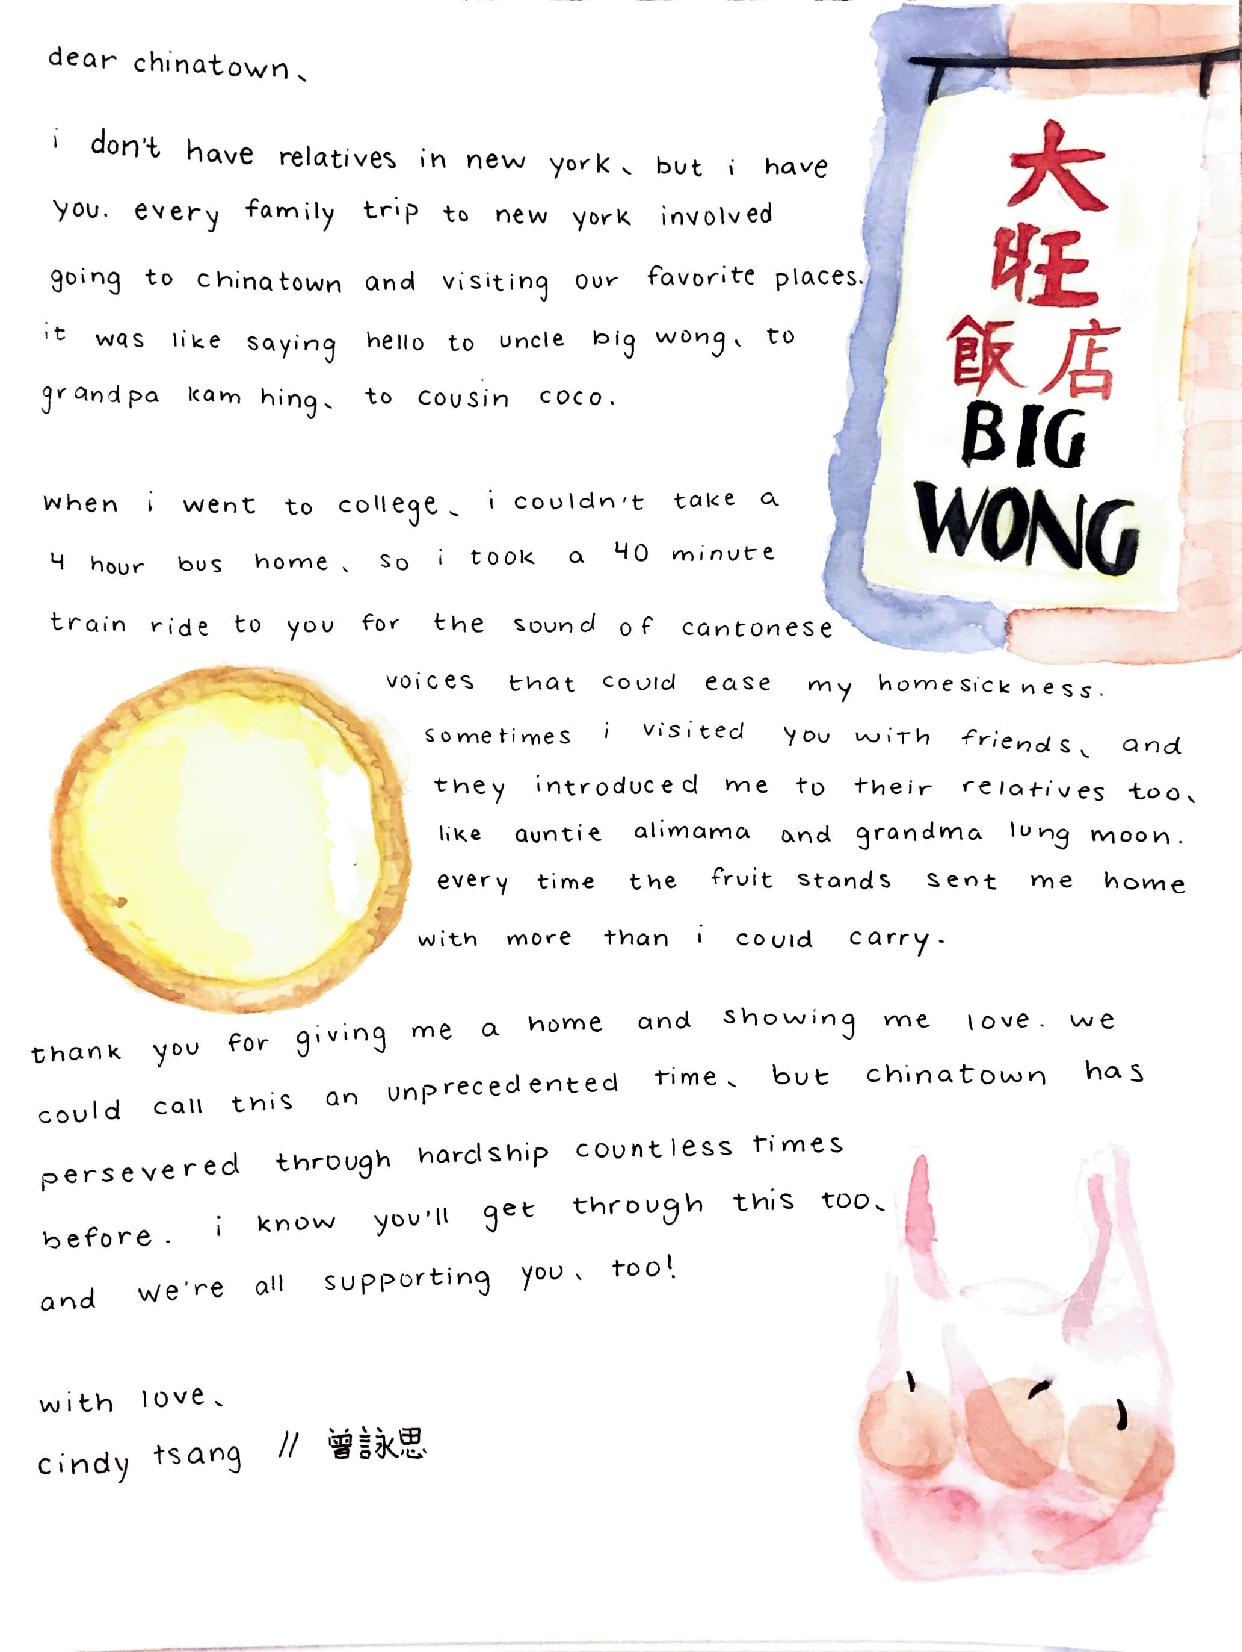 dear chinatown、
i don't have relatives in new york、 but i have
you. every family trip to new york involved
going to chinatown and visiting our favorite places.
it was like saying hello to uncle big wong、 to
grandpa kam hing、 to cousin coco.
when i went to college、 i couldn't take a
4 hour bus home、 so i took a 40 minute
train ride to you for the sound of cantonese
voices that could ease my homesickness.
sometimes i visited you with friends、 and
they introduced me to their relatives too、
like auntie alimama and grandma lung moon.
every time the fruit stands sent me home
with more than i could carry.
thank you for giving me a home and showing me love. we
could call this an unprecedented time、 but chinatown has
persevered through hardship countless times
before. i know you'll get through this too、
and we're all supporting you、 too!
with love、
cindy tsang // 曾詠思
大
旺
飯店
BIG
WONG